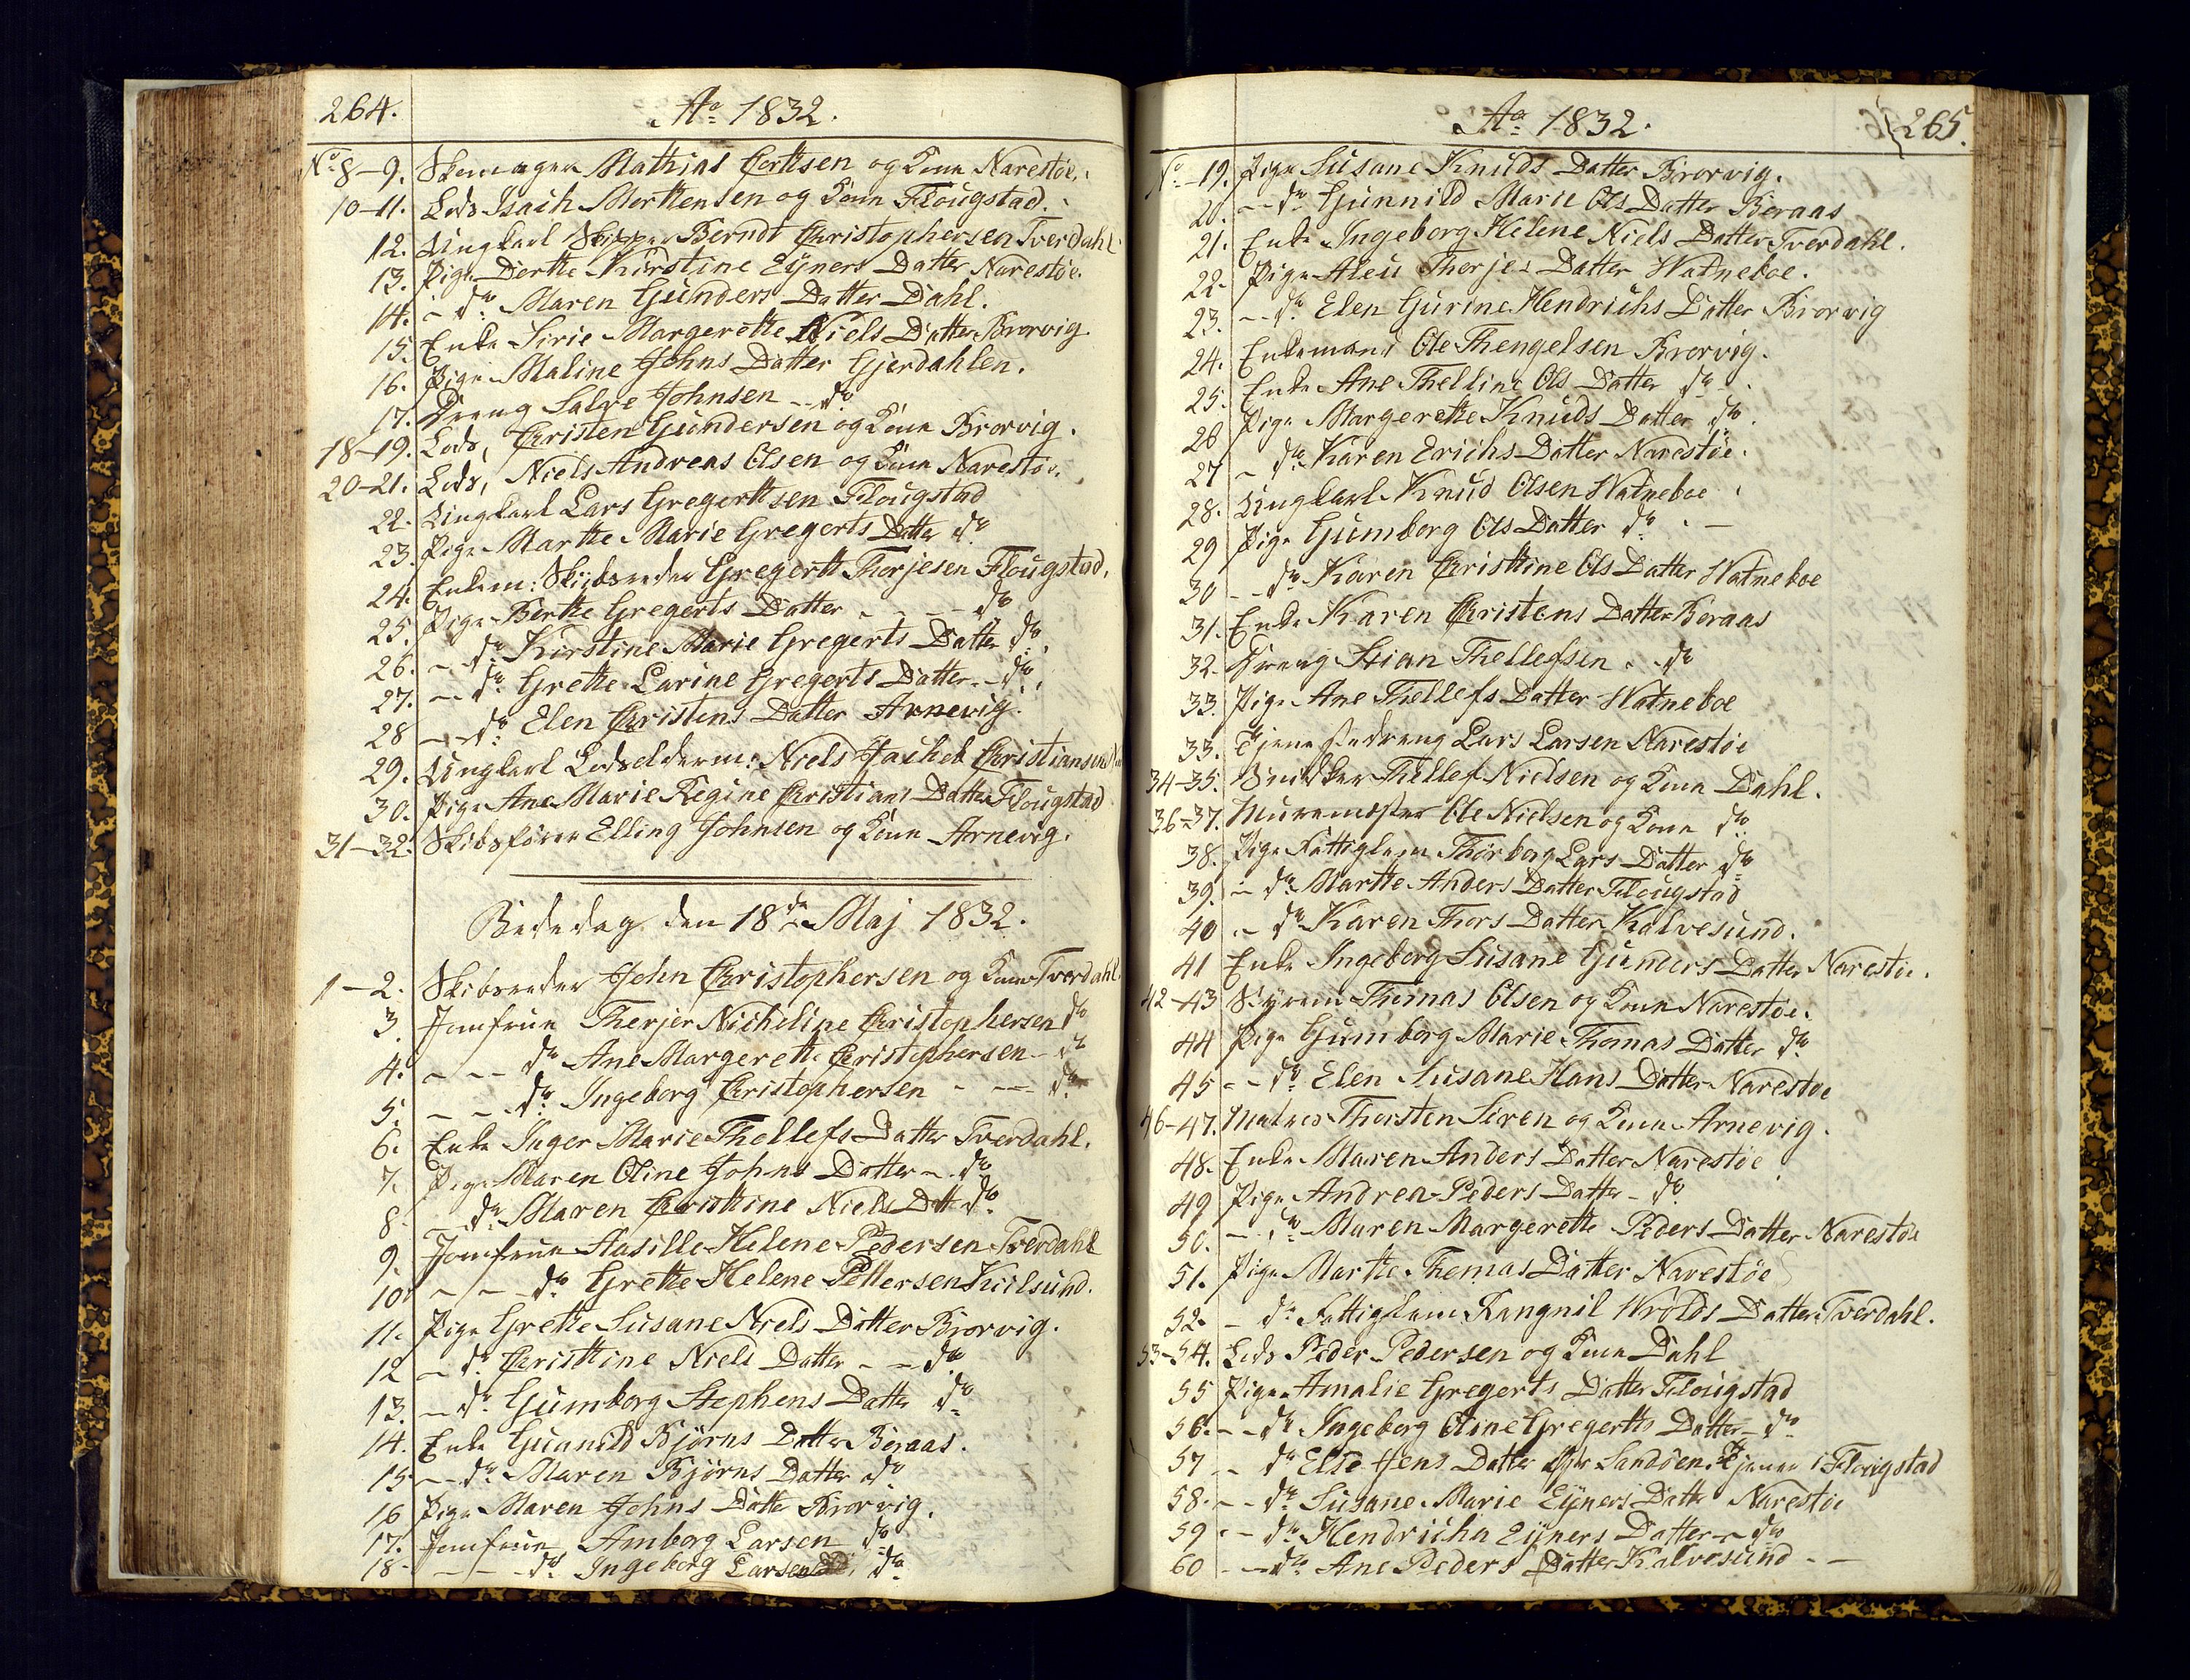 264.
Ao 1832.
No 8-9. Skomager Mathias Certsen og Kone Narestøe.
10-11. Lods Isach Mortensen og Kone Flougstad.
12. Ungkarl Skipper Berndt Christophersen Tverdahl
13. Pige Dorthe Kirstine Eÿners Datter Narestøe.
14. - do Maren Gunders Datter Dahl.
15. Enke Sirie Margerethe Niels Datter Brorvig
16. Pige Maline Johns Datter Gjerdahlen.
17. Dreng Salve Johnsen - do
18-19. Lods, Christen Gundersen og Kone Brorvig.
20-21. Lods, Niels Andreas Olsen og Kone Narestøe.
22. Ungkarl Lars Gregertsen Flougstad
23. Pige Marthe Marie Gregerts Datter do
24. Enkem: Skibsreder Gregert Therjesen Flougstad.
25. Pige Berthe Gregerts Datter - - - do
26. - do Kirstine Marie Gregerts Datter do
27. - do Grethe Larine Gregerts Datter - do
28 - do Elen Christens Datter Arnevig.
29. Ungkarl Lodsolderm: Niels Jachob Christiansen
30. Pige Ane Marie Regine Christians Datter Flougstad
31-32. Skibsfører Elling Johnsen og Kone Arnevig.
Bededag den 18de Maj 1832.
1-2. Skibsreder John Christophersen og Kone Tverdahl
3. Jomfrue Therjer Nicheline Christophersen do
4. - - do Ane Margerethe Christophersen - do
5. - - do Ingeborg Christophersen - - do
6. Enke Inger Marie Thellefs Datter Tverdahl.
7. Pige Maren Oline Johns Datter - do
8. - do Maren Christine Niels Datt do
9. Jomfrue Aasille Helene Pedersen Tverdahl
10. - - do Grethe Helene Pettersen Kiilsund.
11. Pige Grethe Susane Niels Datter Brorvig.
12 - do Christine Niels Datter - - do
13. - do Gumborg Stephens Datter do
14. Enke Gunnild Bjørns Datter Boraas.
15 - do Maren Bjørns Datter do
16 Pige Maren Johns Datter Brorvig.
17. Jomfrue Amborg Larsen do
18 - - - do Ingeborg Larsen do
Ao 1832.
265.
No - 19. Pige Susane Knuds Datter Brorvig.
20. - do Gunnild Marie Ols Datter Boraas
21. Enke Ingeborg Helene Niels Datter Tverdahl.
22. Pige Aleu Therjes Datter Watneboe.
23. - do Elen Gurine Hendrichs Datter Brorvig
24. Enkemand Ole Thengelsen Brorvig.
25. Enke Ane Thelline Ols Datter do
26 Pige Margerethe Knuds Datter do
27 - do Karen Erichs Datter Narestøe.
28. Ungkarl Knud Olsen Watneboe
29 Pige Gumborg Ols Datter do -
30 - do Karen Christine Ols Datter Watneboe
31. Enke Karen Christens Datter Boraas
32. Dreng Stian Thellefsen - do
33. Pige Ane Thellefs Datter Watneboe
33. Tjenestedreng Lars Larsen Narestøe
34-35. Snidker Thellef Nielsen og Kone Dahl.
36-37. Muremester Ole Nielsen og Kone do
38. Pige Fattiglem Thorborg Lars Datter do
39. - do Marthe Anders Datter Flougstad
40 - do Karen Thors Datter Kalvesund.
41 Enke Ingeborg Susane Gunders Datter Narestøe.
42-43 Thomas Olsen og Kone Narestøe.
44 Pige Gumborg Marie Thomas Datter do
45 - do Elen Susane Hans Datter Narestøe
46-47. Matros Thorsten Siren og Kone Arnevig.
48. Enke Maren Anders Datter Narestøe
49 Pige Andrea Peders Datter - do
50. - do Maren Margerethe Peders Datter Narestøe
51. Pige Marthe Thomas Datter Narestøe
52. - do Fattiglem Rangnil Wrolds Datter Tverdahl.
53-54. Lods Peder Pedersen og Kone Dahl
55 Pige Amalie Gregerts Datter Flougstad
56. - - do Ingeborg Oline Gregerts Datter - do
57 - do Else Jens Datter Sandøen, Tjener i Flougstad
58. - - do Susane Marie Eÿners Datter Narestøe
59 - do Hendricha Eÿners Datter - do
60 - - do Ane Peders Datter Kalvesund - -